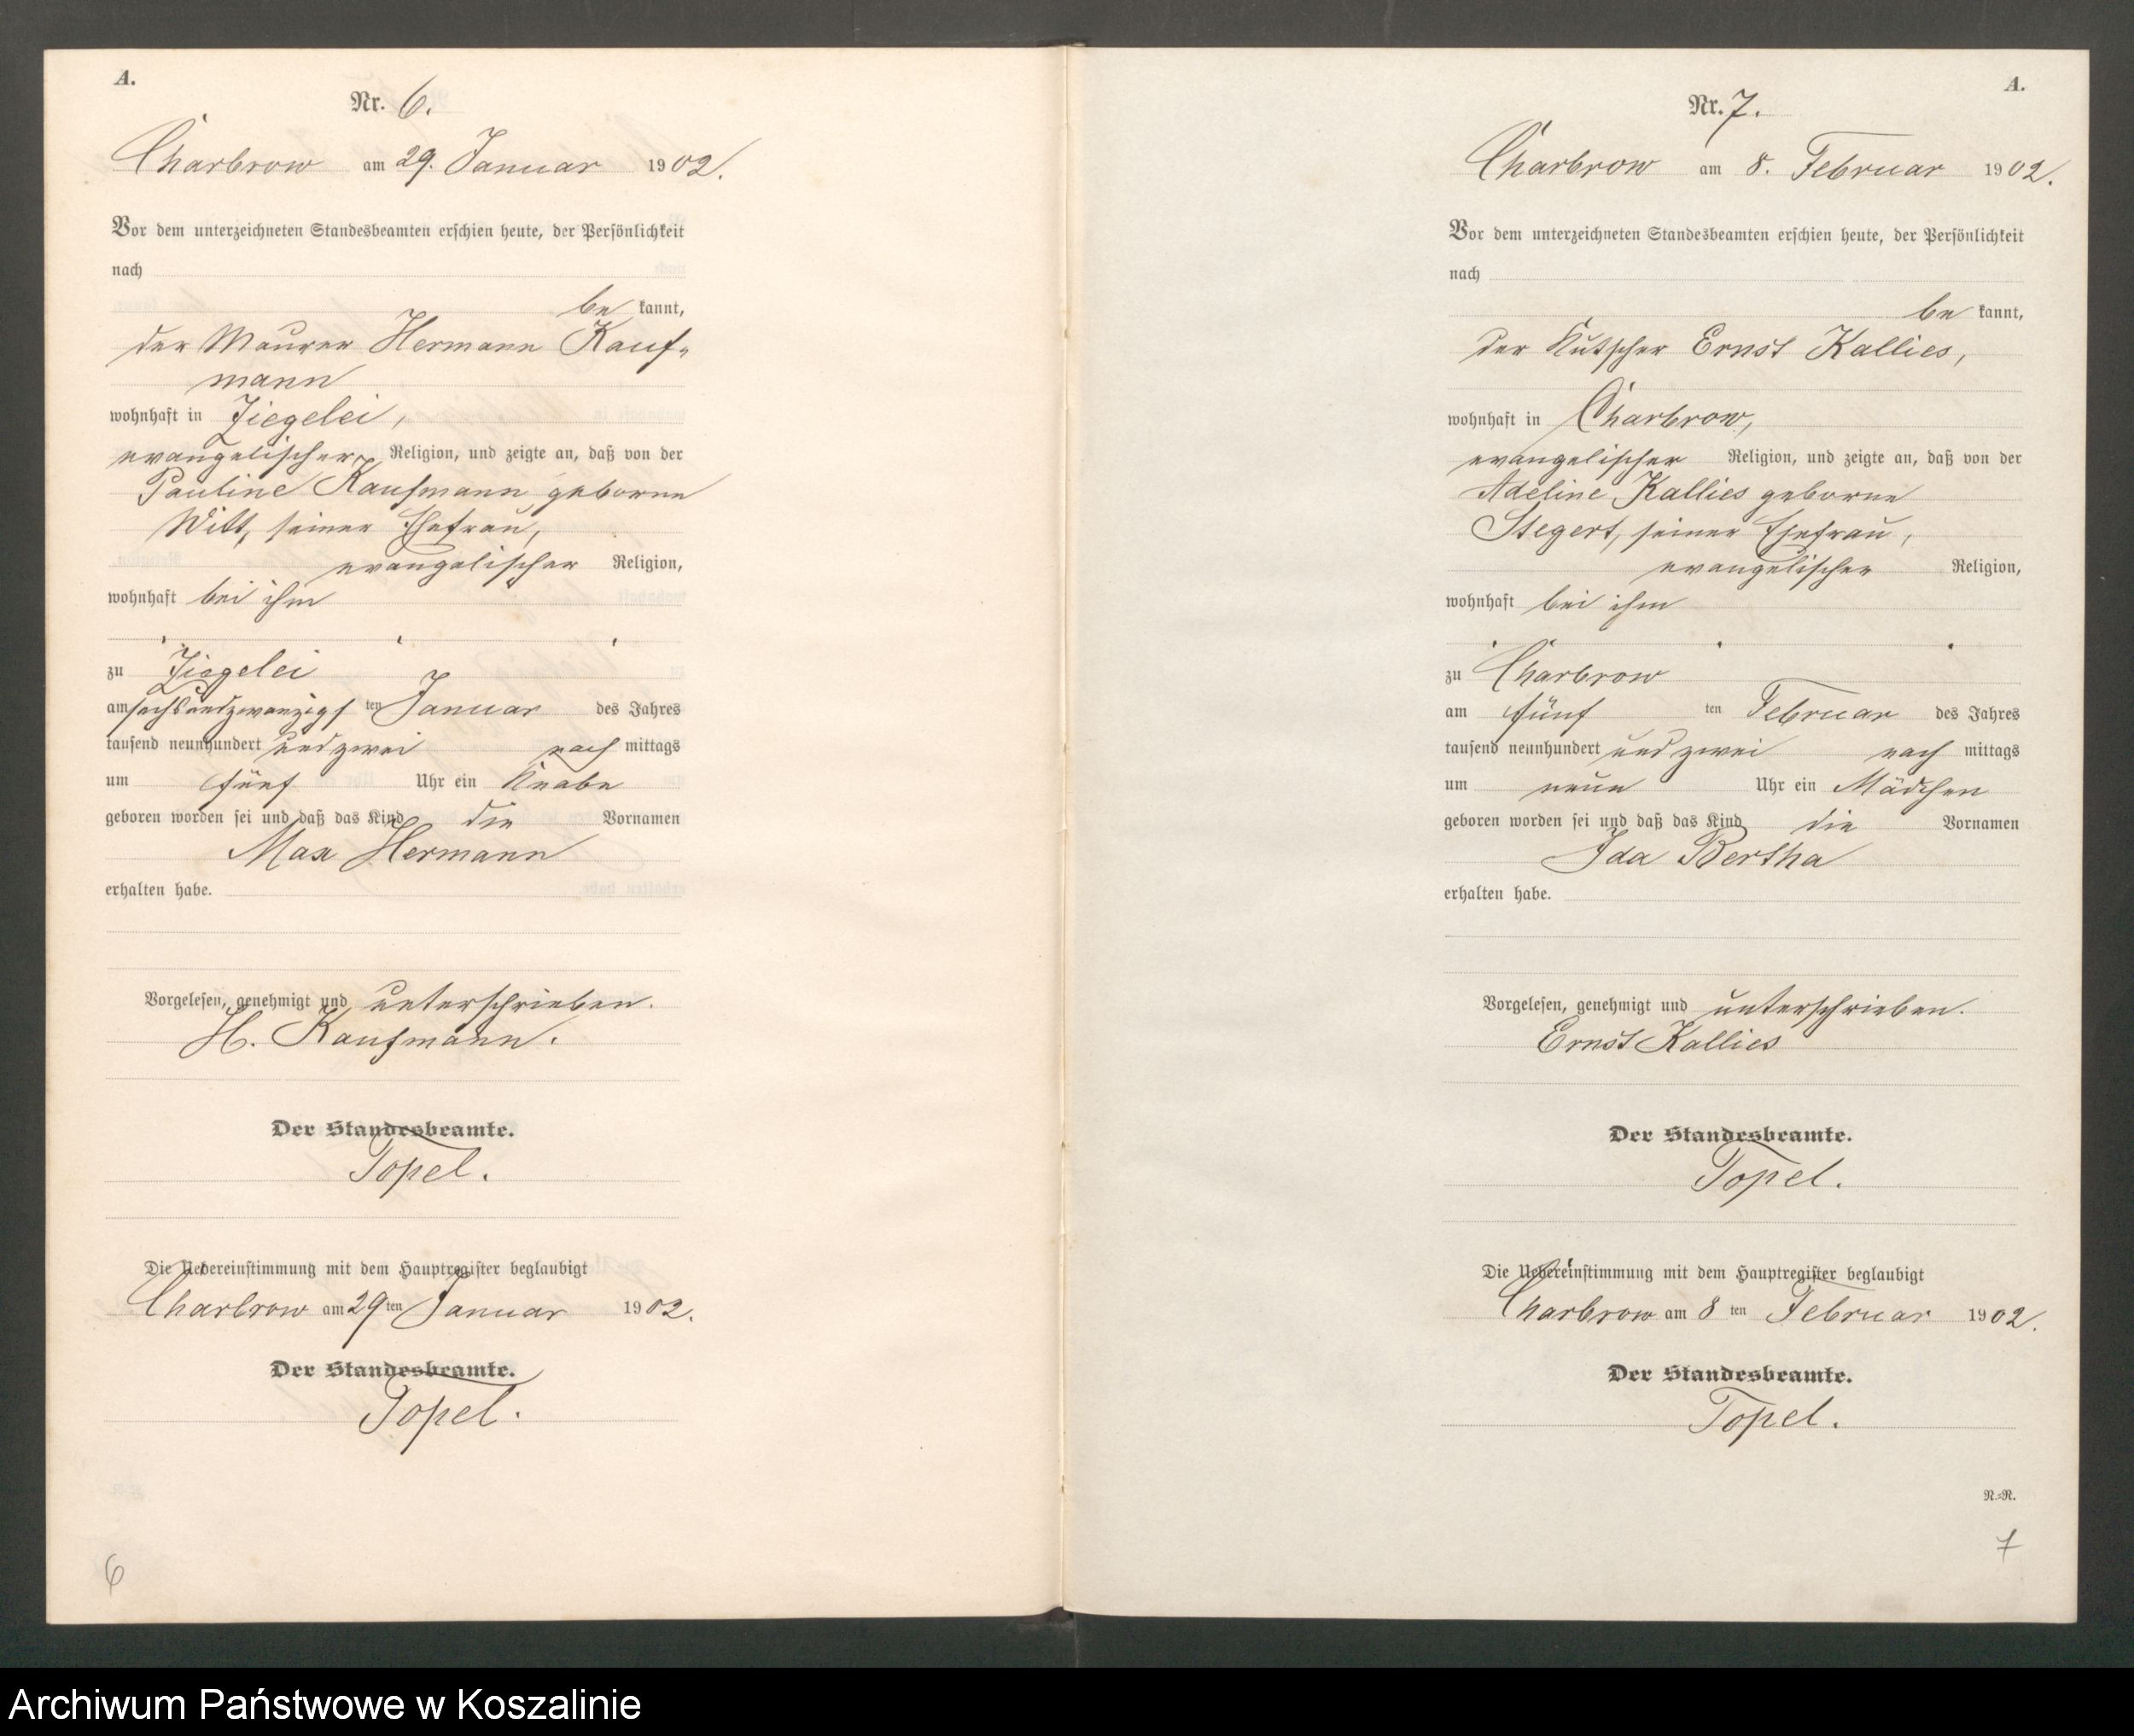 A.
Nr. 6.
Charbrow am 29. Januar 1902.
Vor dem unterzeichneten Standesbeamten erschien heute, der Persönlichkeit
nach
be kannt,
der Maurer Hermann Kauf-
mann
wohnhaft in Ziegelei,
evangelischer Religion, und zeigte an, daß von der
Pauline Kaufmann geborne
Witt, seiner Ehefrau,
evangelischer Religion,
wohnhaft bei ihm
zu Ziegelei
am sechsundzwanzigsten Januar des Jahres
tausend neunhundert und zwei nach mittags
um fünf Uhr ein Knabe
geboren worden sei und daß das Kind die Vornamen
Max Hermann
erhalten habe.
Vorgelesen, genehmigt und unterschrieben.
H. Kaufmann.
Der Standesbeamte.
Topel.
Die Uebereinstimmung mit dem Hauptregister beglaubigt
Charbrow am 29ten Januar 1902.
Der Standesbeamte.
Topel.
6
A.
Nr. 7.
Charbrow am 8. Februar 1902.
Vor dem unterzeichneten Standesbeamten erschien heute, der Persönlichkeit
nach
be kannt,
der Kutscher Ernst Kallies,
wohnhaft in Charbrow,
evangelischer Religion, und zeigte an, daß von der
Adeline Kallies geborne
Stegert, seiner Ehefrau,
evangelischer Religion,
wohnhaft bei ihm
zu Charbrow
am fünf ten Februar des Jahres
tausend neunhundert und zwei nach mittags
um neun Uhr ein Mädchen
geboren worden sei und daß das Kind die Vornamen
Ida Bertha
erhalten habe.
Vorgelesen, genehmigt und unterschrieben.
Ernst Kallies
Der Standesbeamte.
Topel.
Die Uebereinstimmung mit dem Hauptregister beglaubigt
Charbrow am 8 ten Februar 1902.
Der Standesbeamte.
Topel.
N.=R.
7
Archiwum Państwowe w Koszalinie